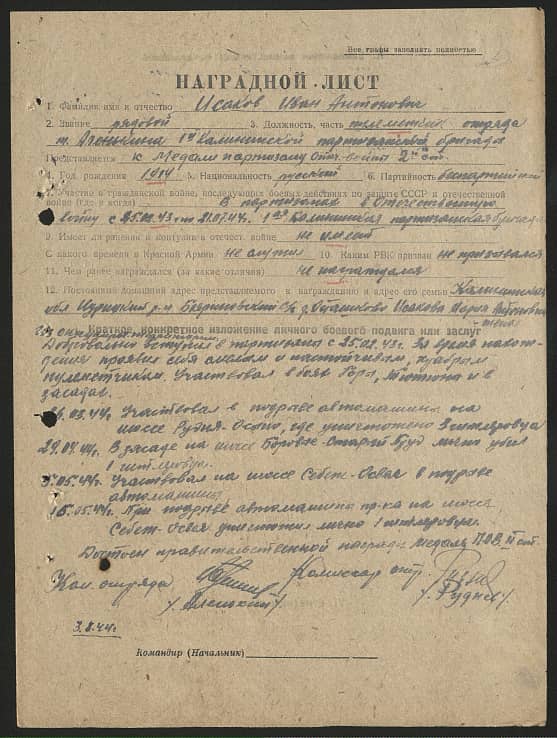 Все графы заполнять полностью
НАГРАДНОЙ ЛИСТ
1. Фамилия имя и отчество Исаков Иван Антонович
2. Звание рядовой 3. Должность, часть пулеметчик отряда
1ой Калининской партизанской бригады
Представляется к Медали партизану Отеч. войны 2ой ст.
4. Год рождения 1914 5. Национальность русский 6. Партийность беспартийный
8. Участие в гражданской войне, последующих боевых действиях по защите СССР и отечественной
войне (где и когда) В партизанах в Отечественную
войну с 25.02.43 по 21.07.44г. 1ая Калининская партизанская бригада
9. Имеет ли ранения и контузии в отечест. войне не имеет
С какого времени в Красной Армии не служил 10. Каким РВК призван не призывался
11. Чем ранее награждался (за какие отличия) не награждался
12. Постоянный домашний адрес представляемого к награждению и адрес его семьи Калининская
обл. Идрицкий р-н с/с д. Исакова Мария Антоновна
Краткое, конкретное изложение личного боевого подвига или заслуг
Добровольно вступил в партизаны с 25.02.43г. За время нахож-
дения проявил себя смелым и настойчивым, храбрым
пулеметчиком. Участвовал в боях и в
засадах.
26.03.44г. Участвовал в подрыве автомашины на
шоссе где уничтожено 3 гитлеровца
29.04.44г. В засаде на шоссе лично убил
1 гитлеровца.
Участвовал на шоссе Себеж-Освея в подрыве
автомашины
15.05.44г. При подрыве автомашины пр-ка на шоссе
Себеж-Освея уничтожил лично 1 гитлеровца.
Достоин правительственной награды медаль П.О.В. II ст.
Ком. отряда Комиссар отр.
/Руднев/
3.8.44г.
Командир (Начальник)